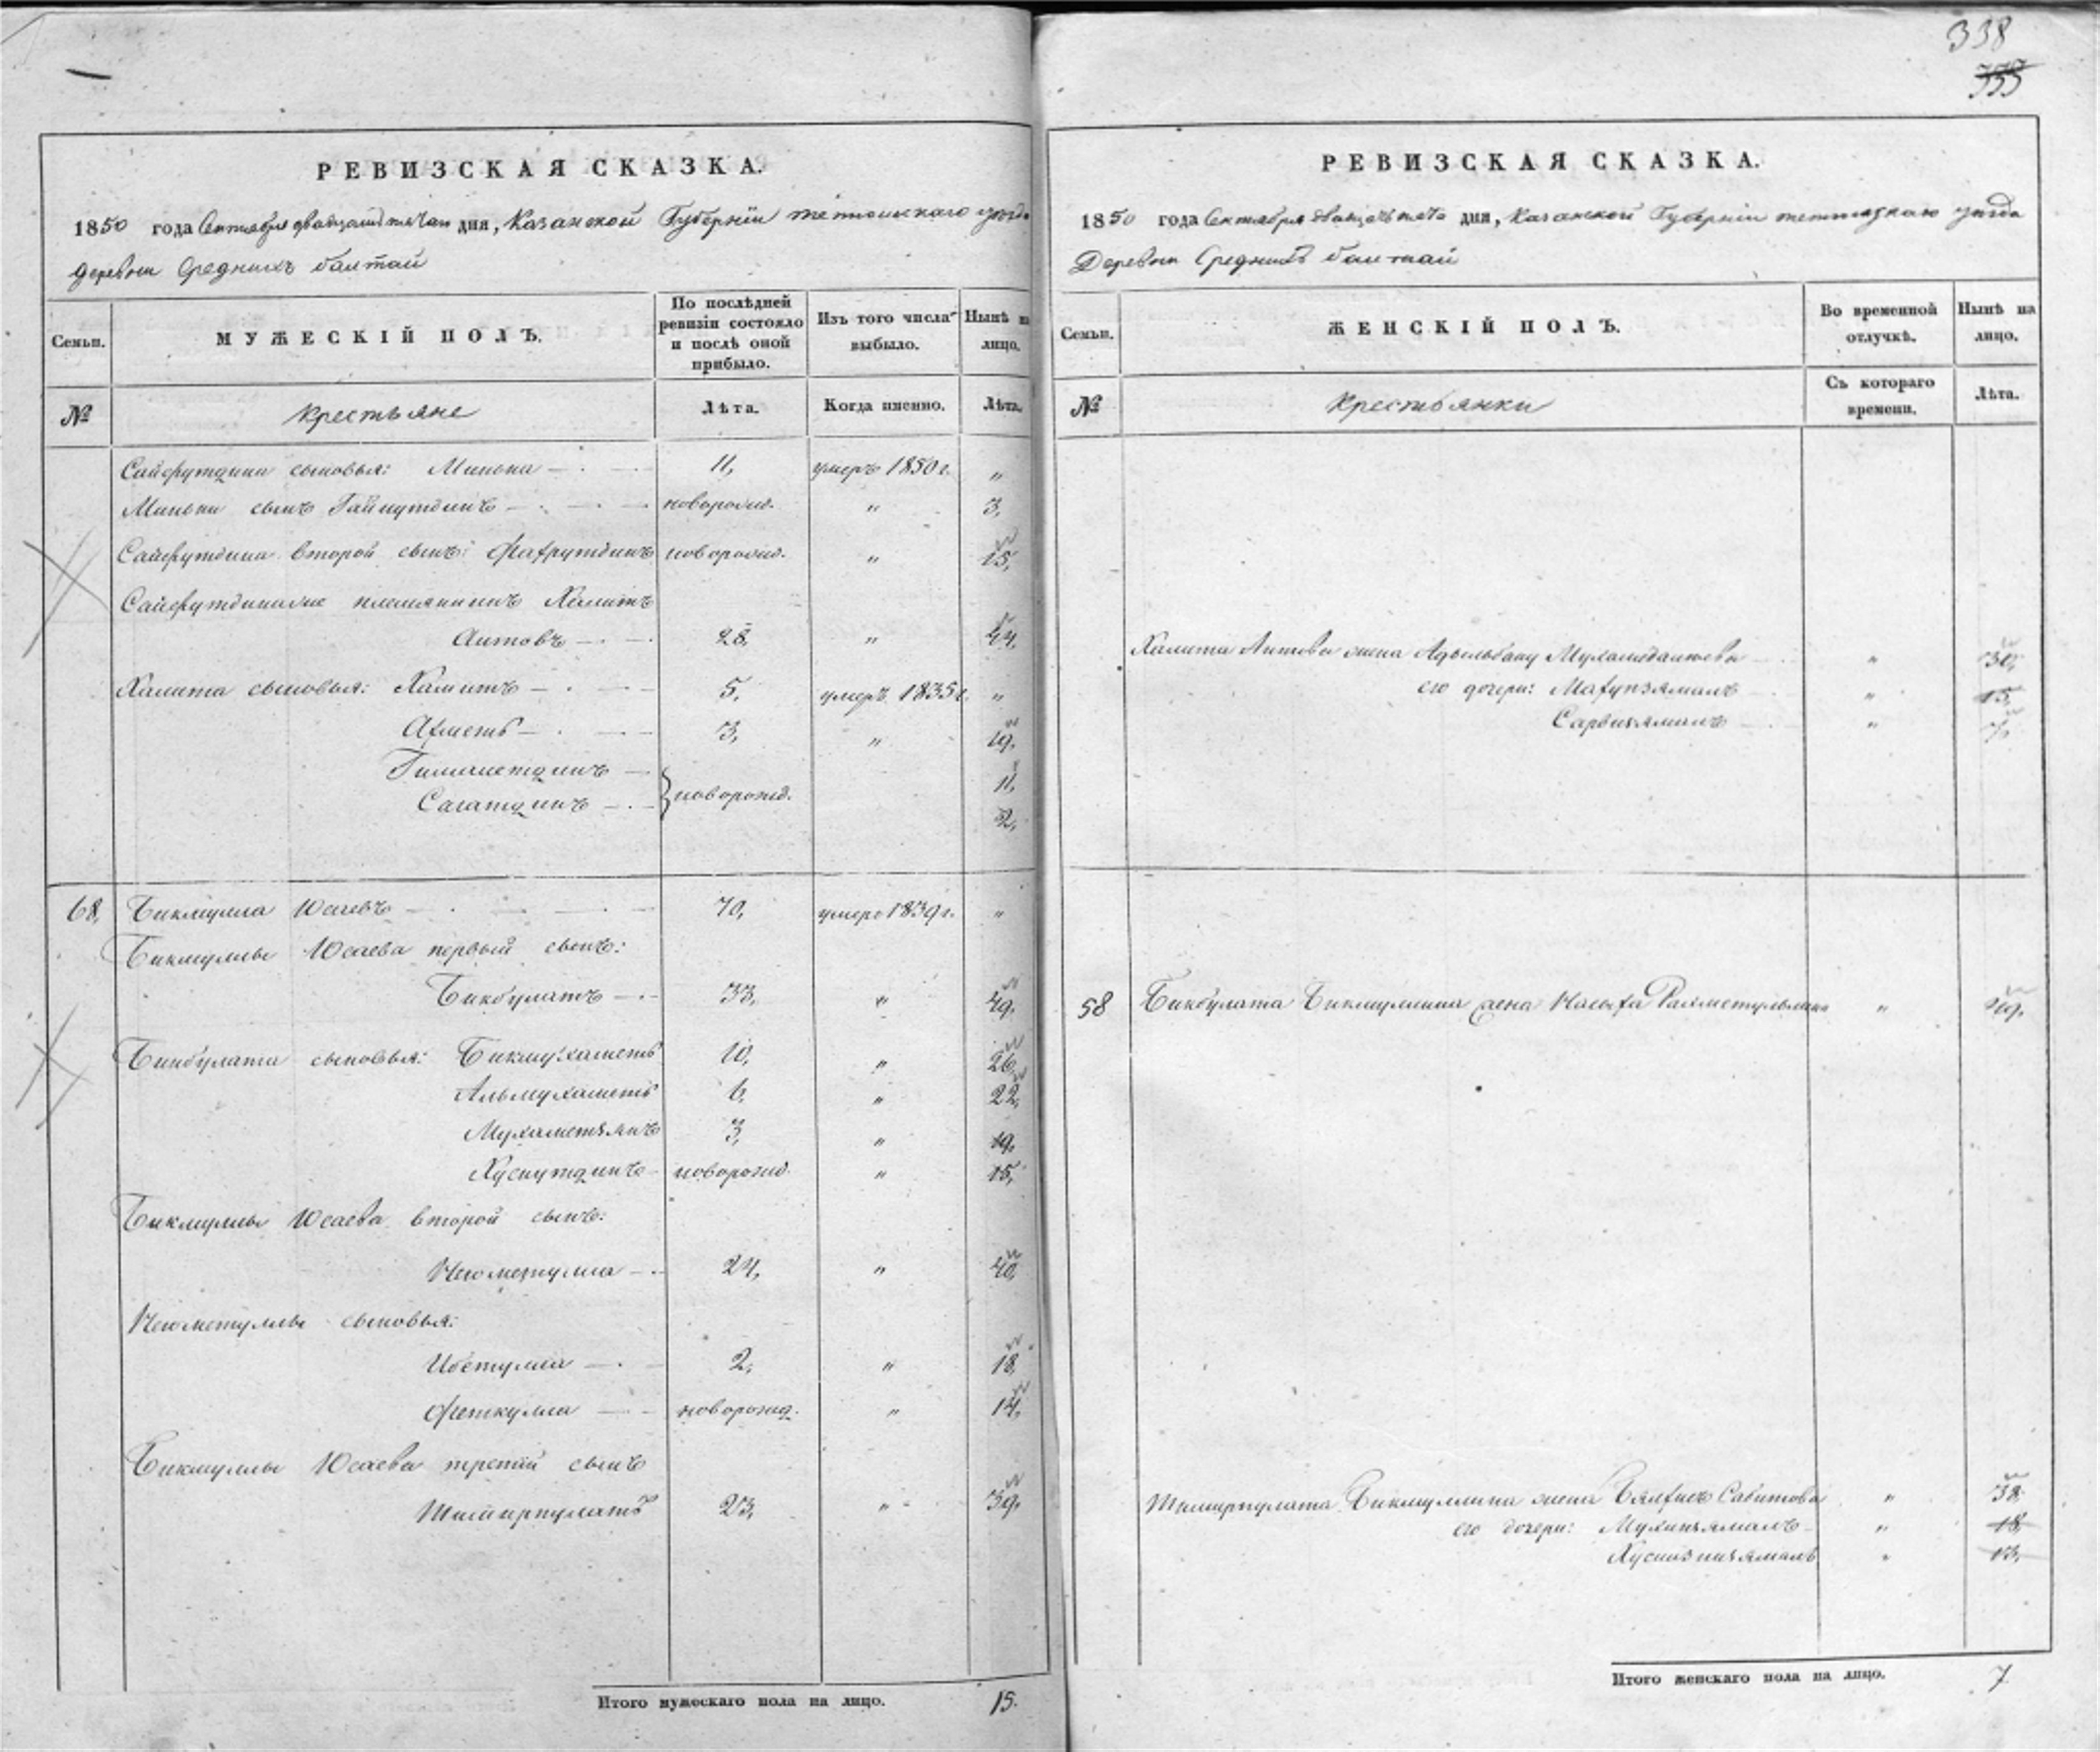 338
333
РЕВИЗСКАЯ СКАЗКА.
1850 года Сентября дня, Казанской Губерніи тетюшскаго уѣзда
деревни Среднихъ балтай
Семьи.
МУЖЕСКІЙ ПОЛЪ.
По послѣдней ревизіи состояло и послѣ оной прибыло.
Изъ того числа выбыло.
Нынѣ на лицо.
№
Крестьяне
Лѣта.
Когда именно.
Лѣта.
Сайфутдина сыновья: Минька 11, умеръ 1850 г. "
Миньки сынъ Гайнутдинъ новорожд. " 3,
Сайфутдина второй сынъ: Фахрутдинъ новорожд. " 15,
Сайфутдина племянникъ Халитъ
Аитовъ 28, " 44,
Халита сыновья: Хамитъ 5, умеръ 1835 г. "
Ахметъ 3, " 19,
Гималетдинъ 11,
Сагатдинъ новорожд. 2,
68, Бикмулла Юсаевъ 70, умеръ 1839 г. "
Бикмуллы Юсаева первый сынъ:
Бикбулатъ 33, " 49,
Бикбулата сыновья: Бикмухаметъ 10, " 26,
Альмухаметъ 6, " 22,
Мухаметзянъ 3, " 19,
Хуснутдинъ новорожд. " 15,
Бикмуллы Юсаева второй сынъ:
Негометулла 24, " 40,
Негометуллы сыновья:
Ибетулла 2, " 18,
Феткулла новорожд. " 14,
Бикмуллы Юсаева третій сынъ
Тимирпулатъ 23, " 39,
Итого мужескаго пола на лицо. 15.
РЕВИЗСКАЯ СКАЗКА.
1850 года Сентября дня, Казанской Губерніи тетюшскаго уѣзда
Деревни Среднихъ балтай
Семьи.
ЖЕНСКІЙ ПОЛЪ.
Во временной отлучкѣ.
Нынѣ на лицо.
№
Крестьянки
Съ котораго времени.
Лѣта.
Халита Аитова жена Адельбану " 30,
его дочери: Махупзямалъ " 15,
Сарвизямалъ " 7,
58 Бикбулата Бикмуллина жена " 49,
Тимирпулата Бикмуллина жена Сабитова " 38,
его дочери: " 18,
" 13,
Итого женскаго пола на лицо. 7